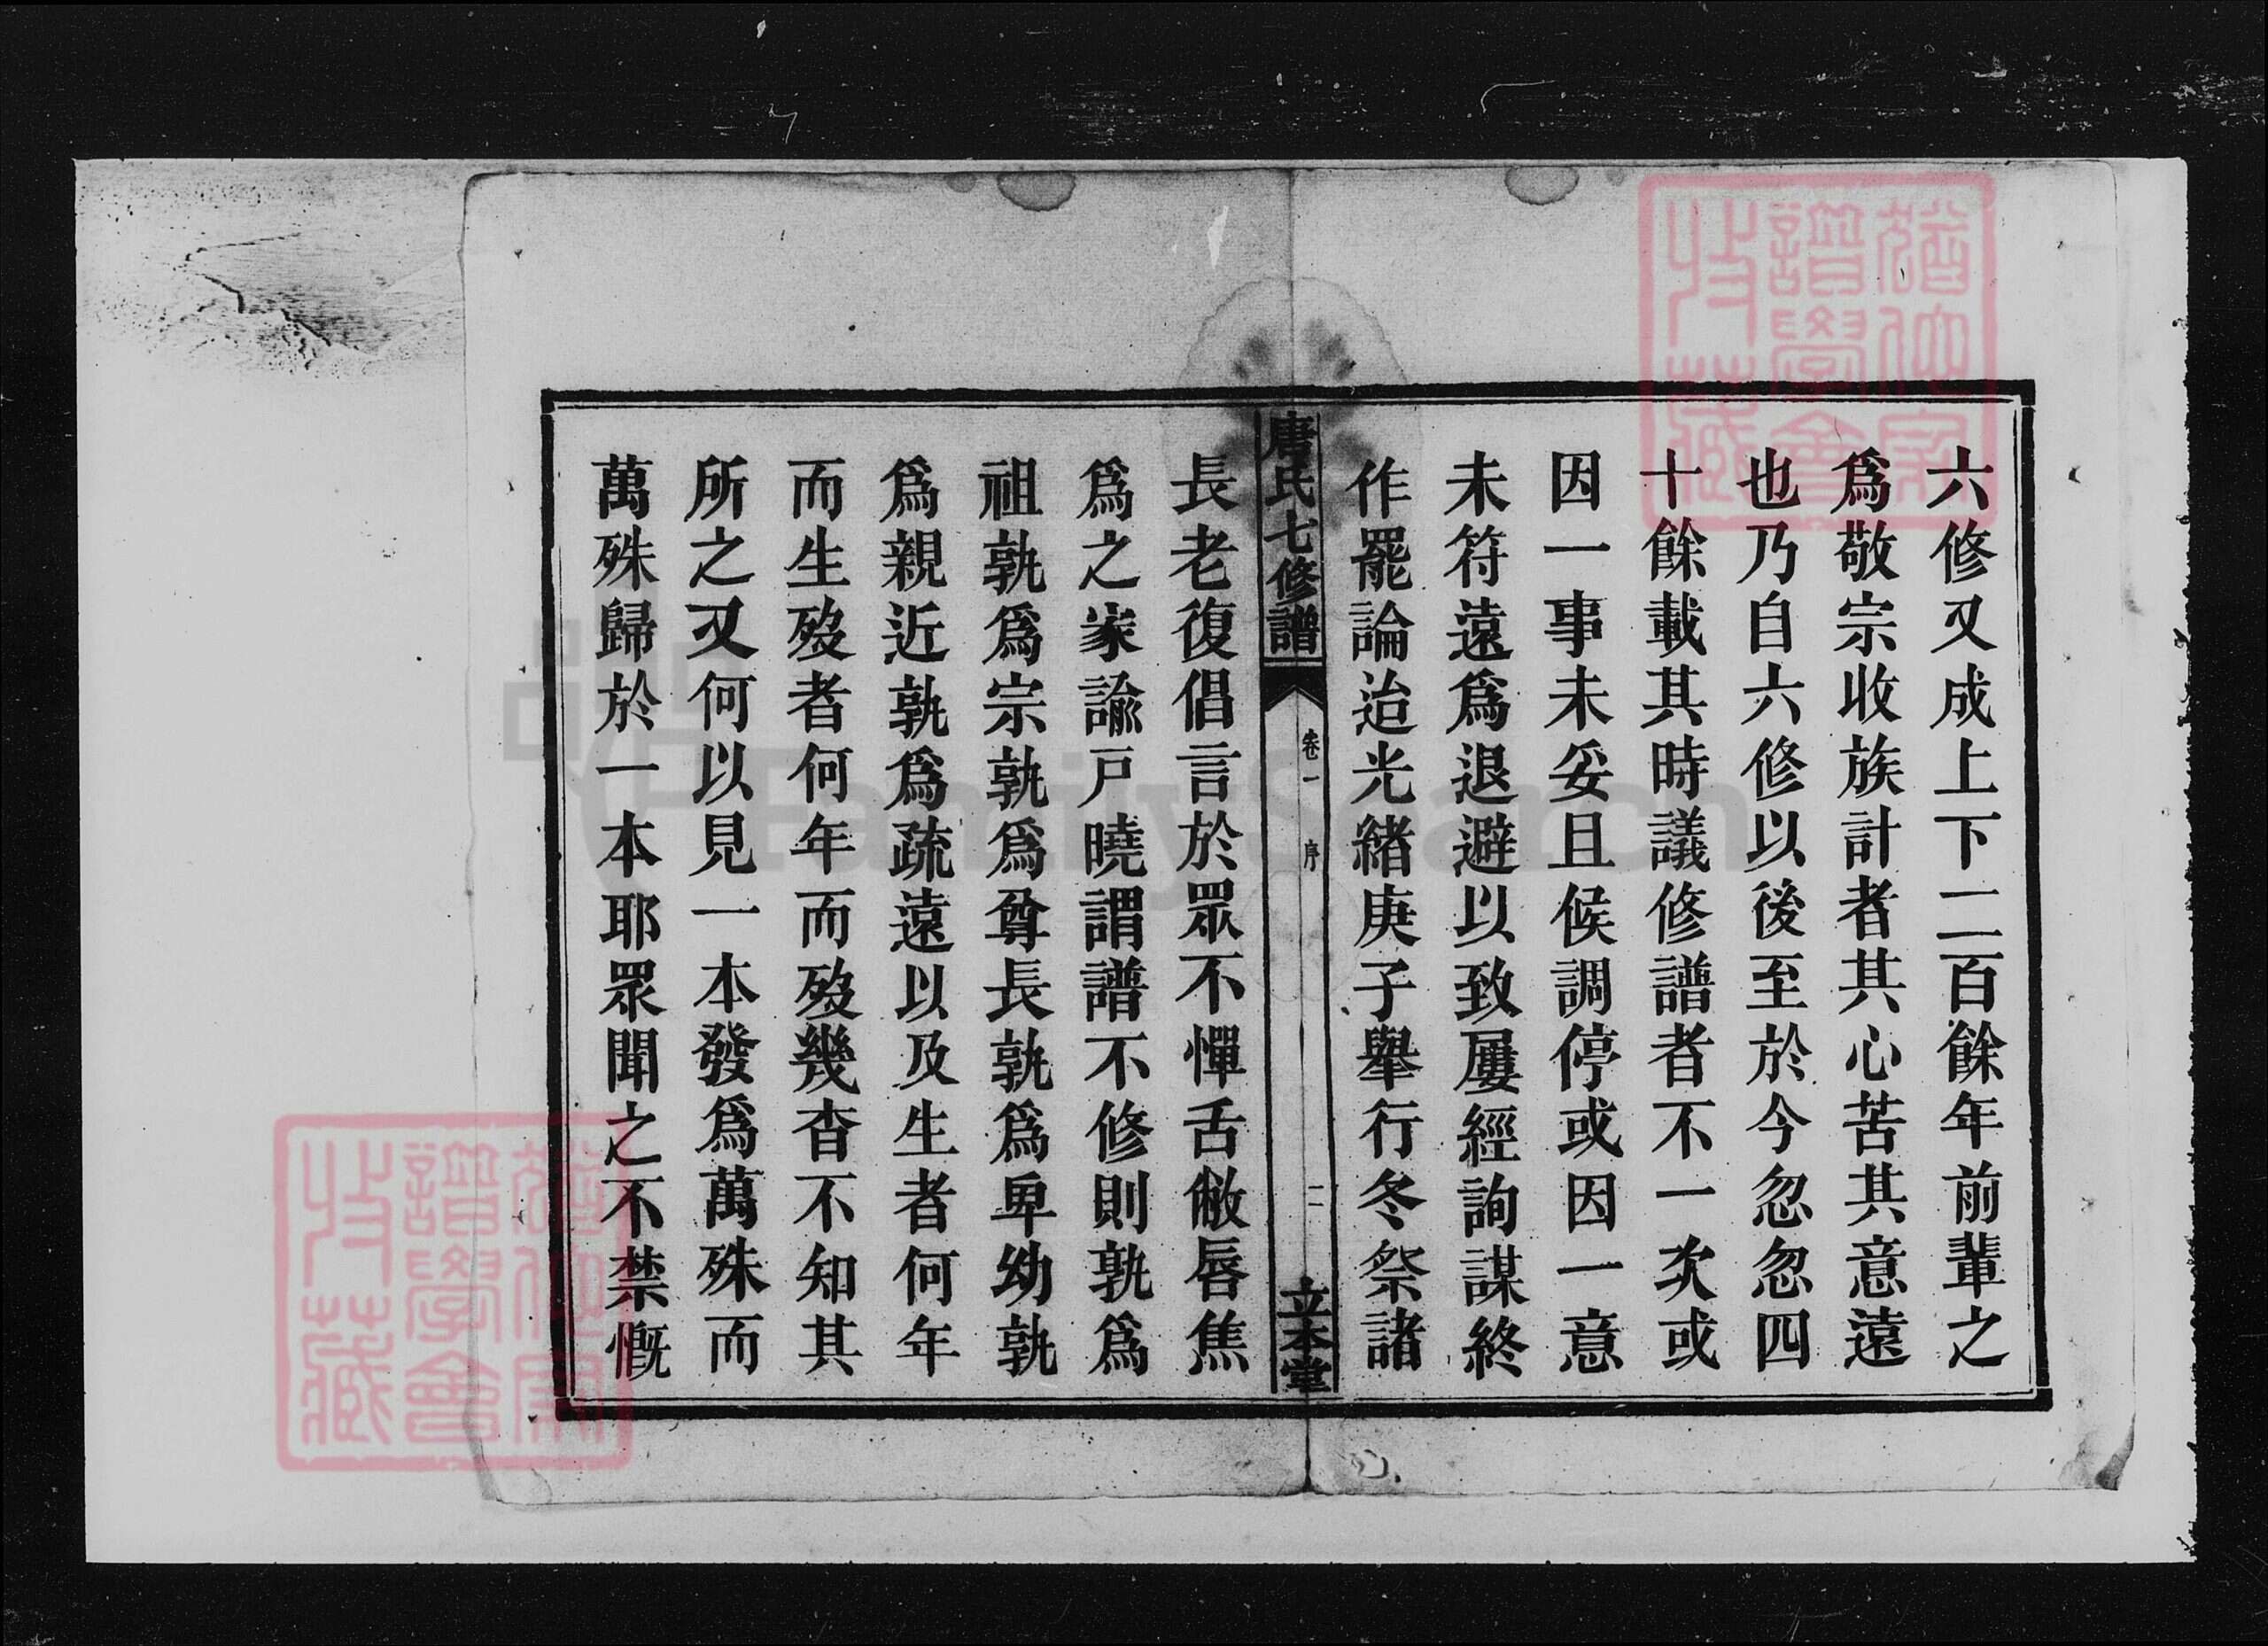 六修又成上下二百餘年前輩之
爲敬宗收族計者其心苦其意遠
也乃自六修以後至於今忽忽四
十餘載其時議修譜者不一次或
因一事未妥且候調停或因一意
未符遠爲退避以致屢經詢謀終
作罷論迨光緒庚子舉行冬祭諸
唐氏七修譜
卷一
序
二
立本堂
長老復倡言於眾不憚舌敝唇焦
爲之家諭戸曉謂譜不修則孰爲
祖孰爲宗孰爲尊長孰爲卑幼孰
爲親近孰爲疏遠以及生者何年
而生歿者何年而歿幾杳不知其
所之又何以見一本發爲萬殊而
萬殊歸於一本耶眾聞之不禁慨
譜
FamilySearch